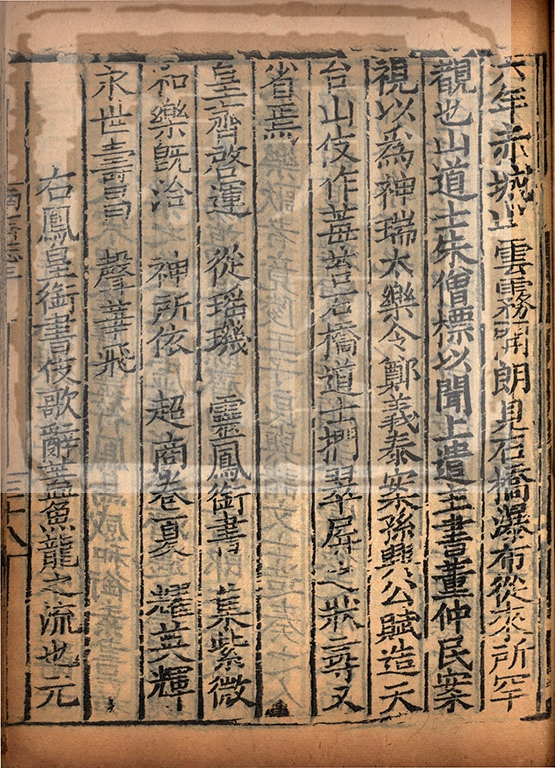 六年赤城山雲霧開朗見石橋瀑布從來所罕
觀也山道士朱僧標以聞上遣主書董仲民案
視以為神瑞太樂令鄭義泰案孫興公賦造天
台山伎作莓苔石橋道士捫翠屏之狀尋又
省焉
皇齊啓運從瑤璣 靈鳳銜書集紫微
和樂既洽神所依 超商卷夏耀英輝
永世壽昌聲華飛
右鳳皇銜書伎歌辭蓋魚龍之流也元
南齊志三
三十八